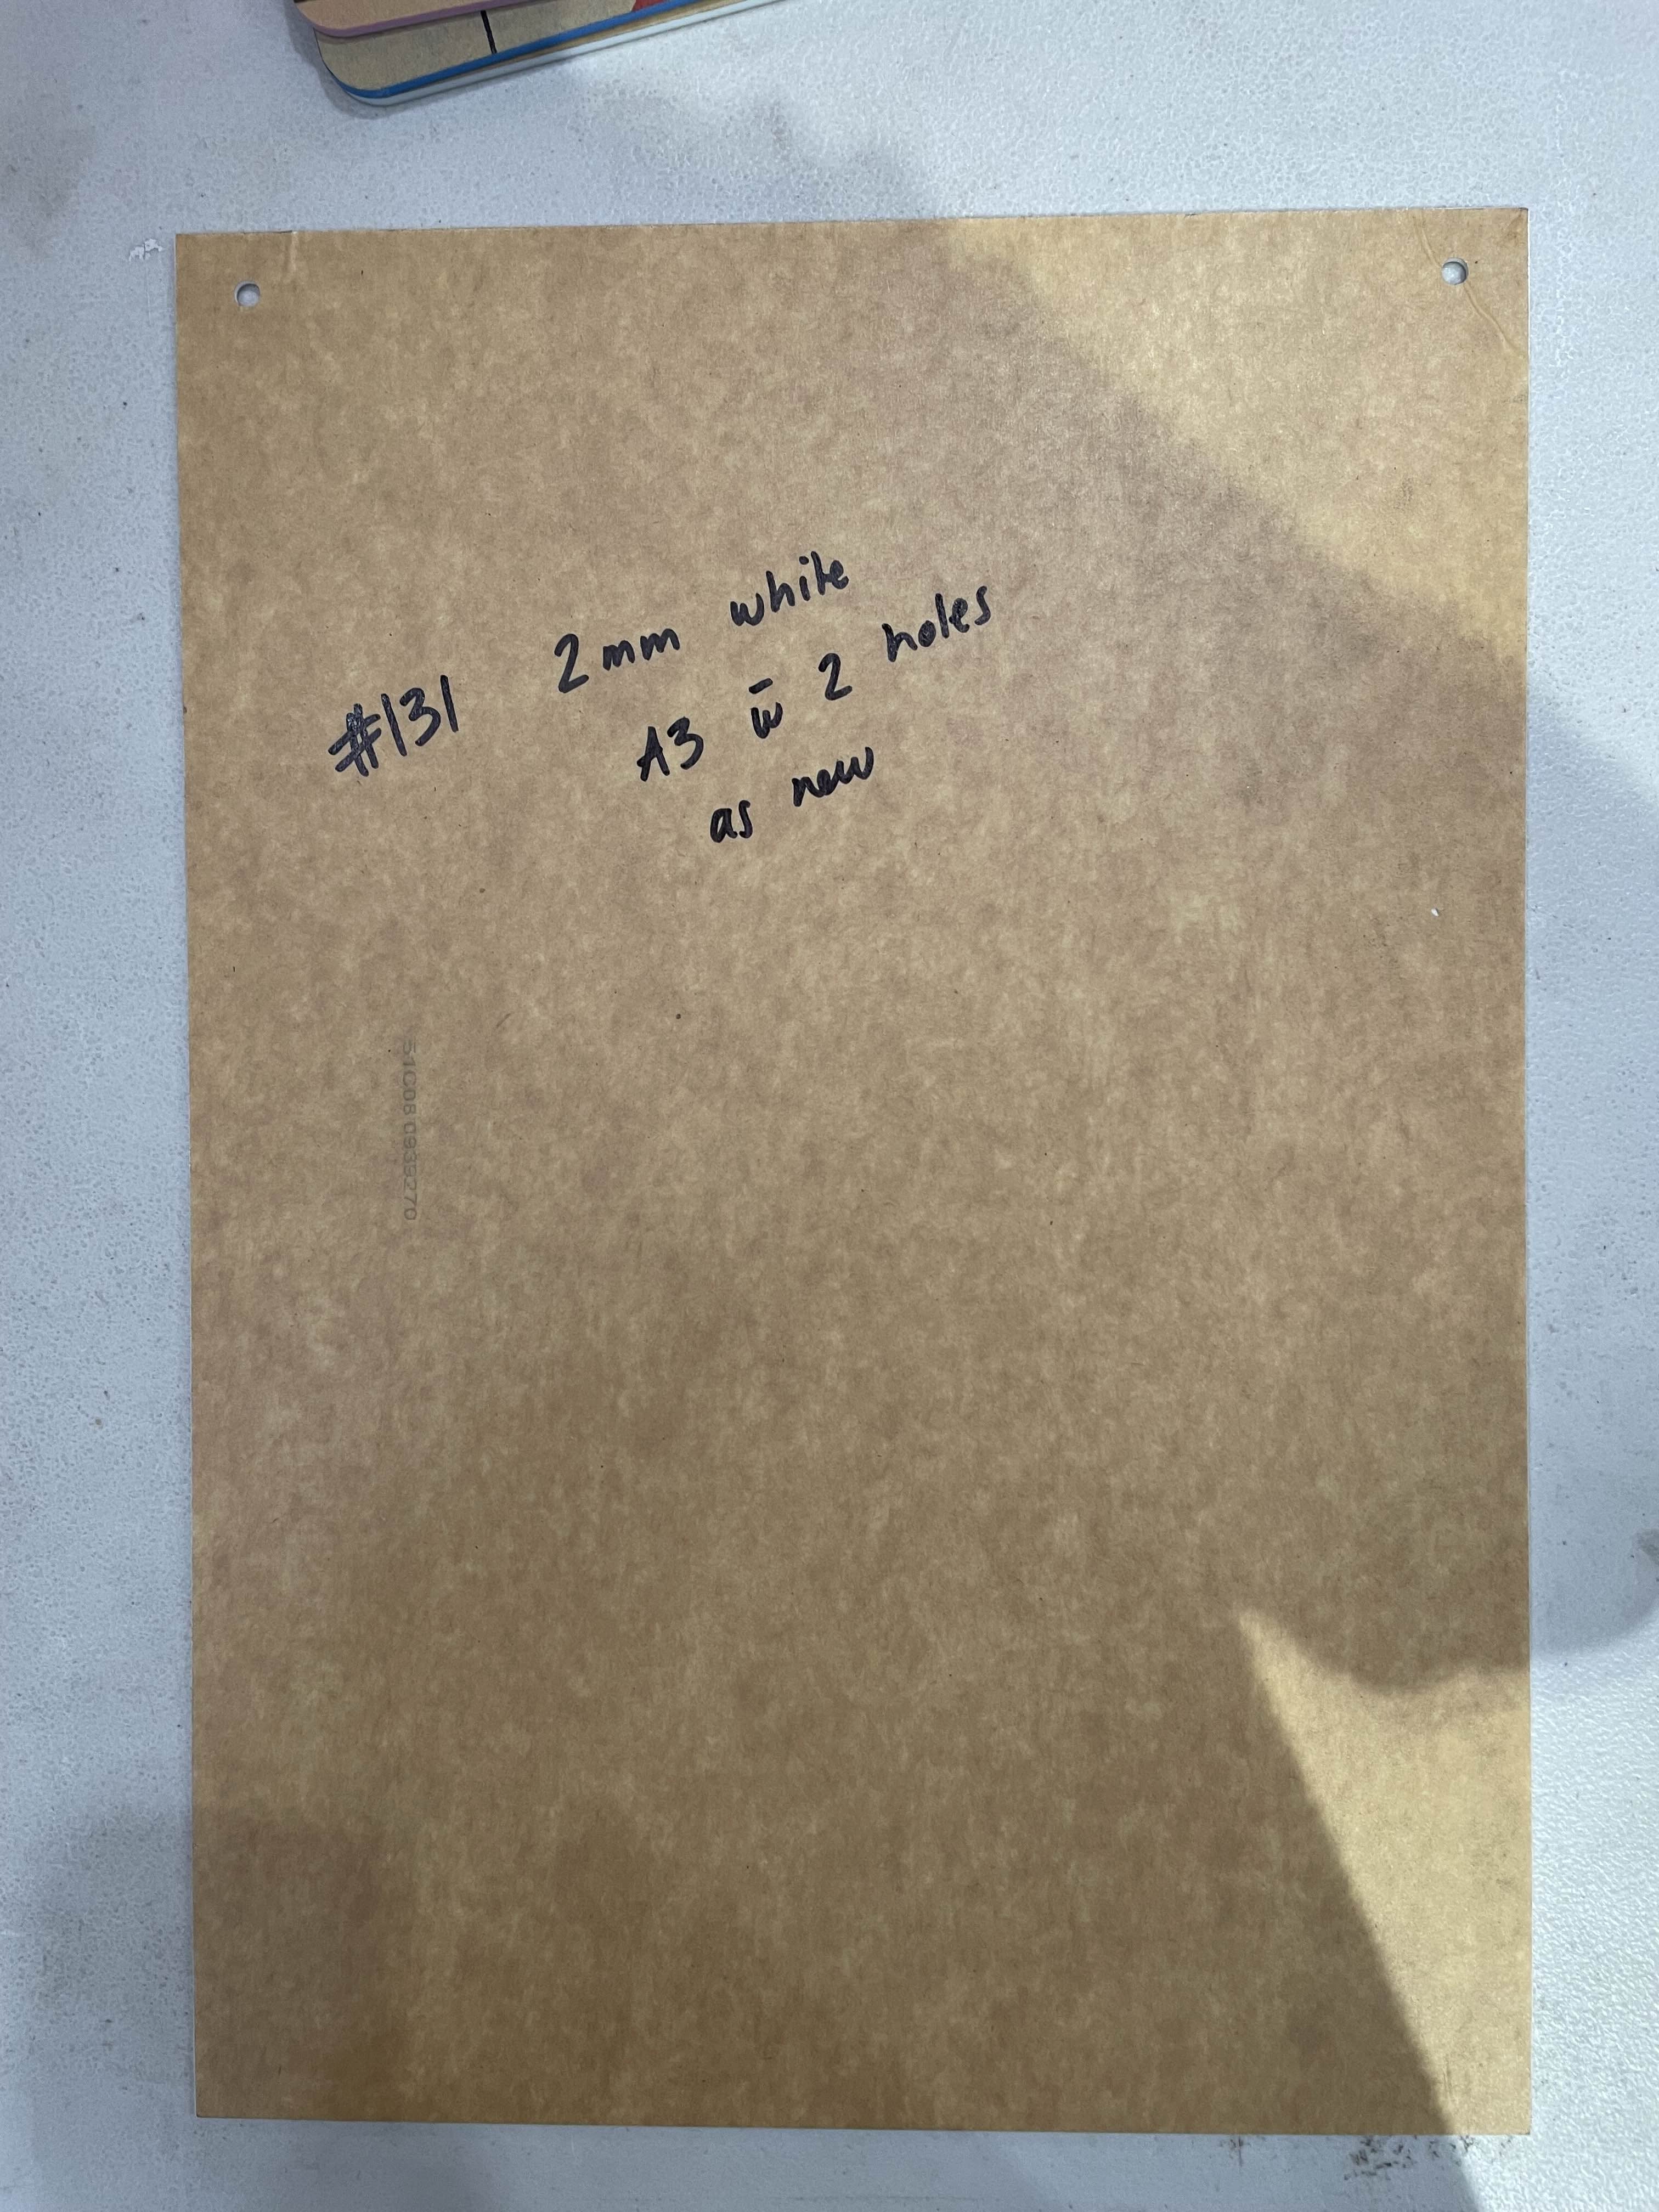 #131 2mm white
A3 w̄ 2 holes
as new
51CD8 0939270